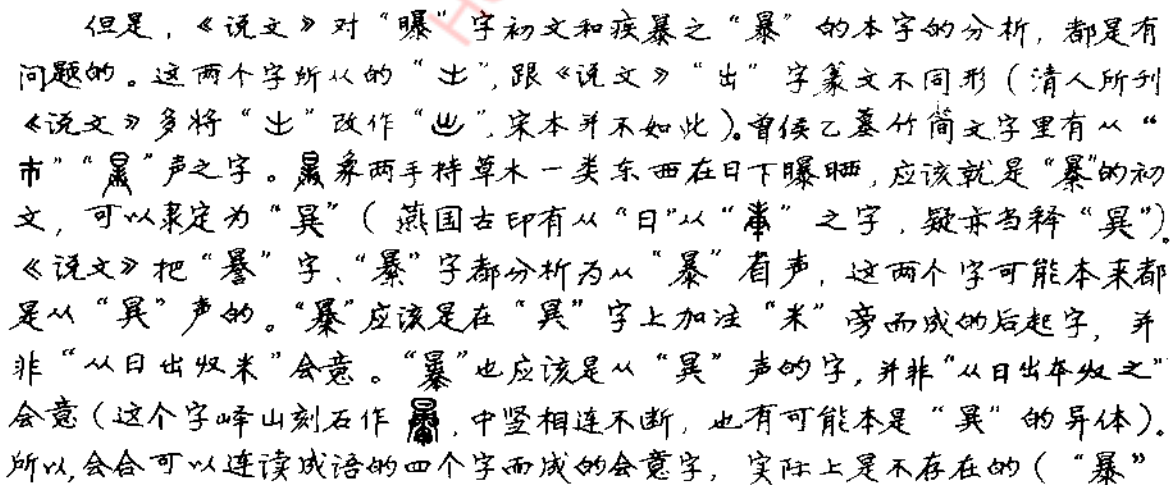 但是，《说文》对“曝”字初文和疾暴之“暴”的本字的分析，都是有
问题的。这两个字所从的“𡳿”，跟《说文》“出”字篆文不同形（清人所刊
《说文》多将“𡳿”改作“㞢”，宋本并不如此）。曾侯乙墓竹简文字里有从“
市”“”声之字。象两手持草木一类东西在日下曝晒，应该就是“暴”的初
文，可以隶定为“㫒”（燕国古印有从“日”从“”之字，疑亦当释“㫒”）。
《说文》把“”字、“暴”字都分析为从“暴”省声，这两个字可能本来都
是从“㫒”声的。“暴”应该是在“㫒”字上加注“米”旁而成的后起字，并
非“从日出収米”会意。“㬥”也应该是从“㫒”声的字，并非“从日出夲収之”
会意（这个字峄山刻石作，中竖相连不断，也有可能本是“㫒”的异体）。
所以，会合可以连读成语的四个字而成的会意字，实际上是不存在的（“暴”